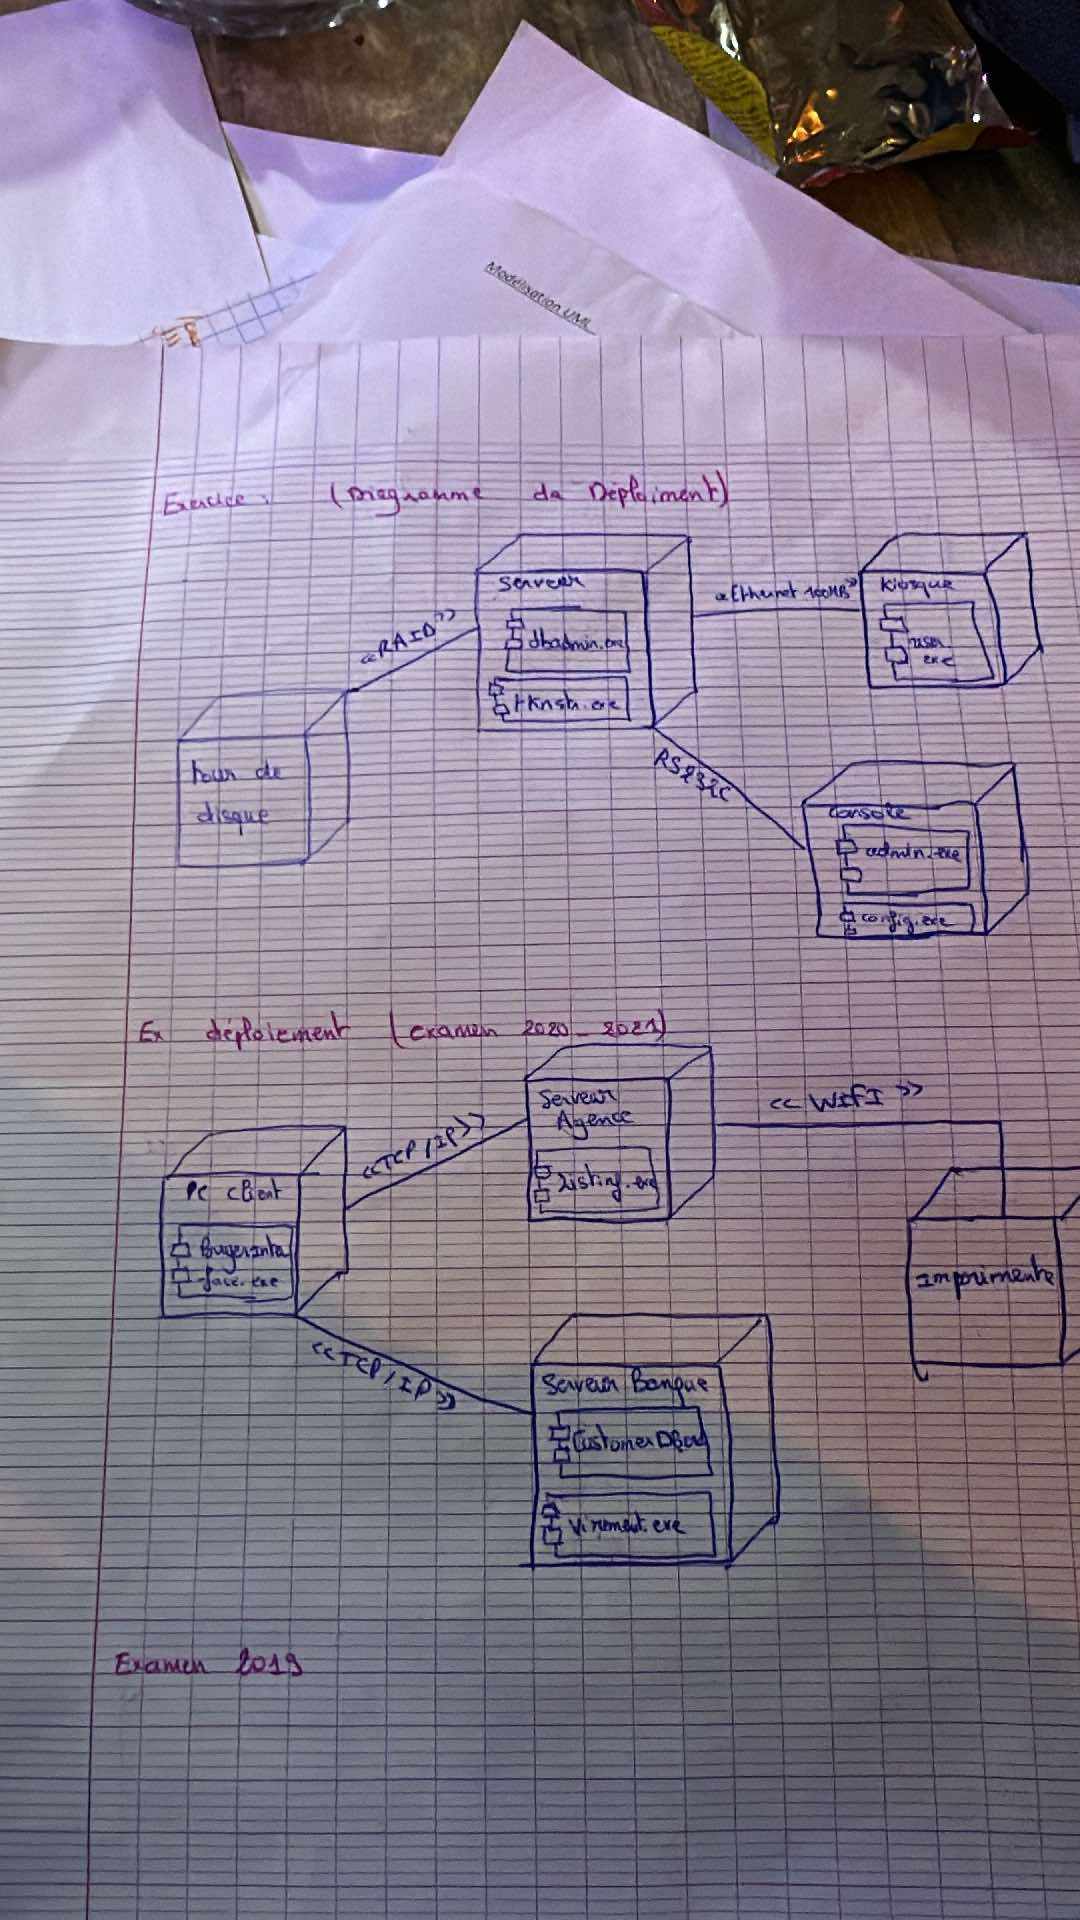 Modélisation UML
Exercice : (Diagramme da Déploiment)
Serveur
dbadmin.exe
«RAID»
«Ethernet 100MB»
Kiosque
user
exe
tour de
disque
RS232C
console
admin.exe
config.exe
Ex déploiement (examen 2020-2021)
Serveur
Agence
Listing.exe
«TCP/IP»
<< WIFI >>
PC client
BuyerInta
face.exe
Imprimente
<<TCP/IP>>
Serveur Banque
Virement.exe
Examen 2019